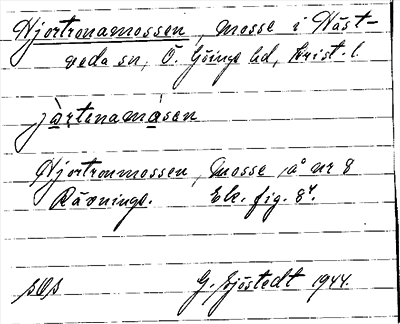 Hjortronamossen, mosse i Häst-
veda sn, Ö. Göinge hd, Krist. l.
jàrtenamàsen
Hjortronmossen, mosse, å nr 8
Rävninge. Ek. fig. 8⁴.
G. Sjöstedt 1944.